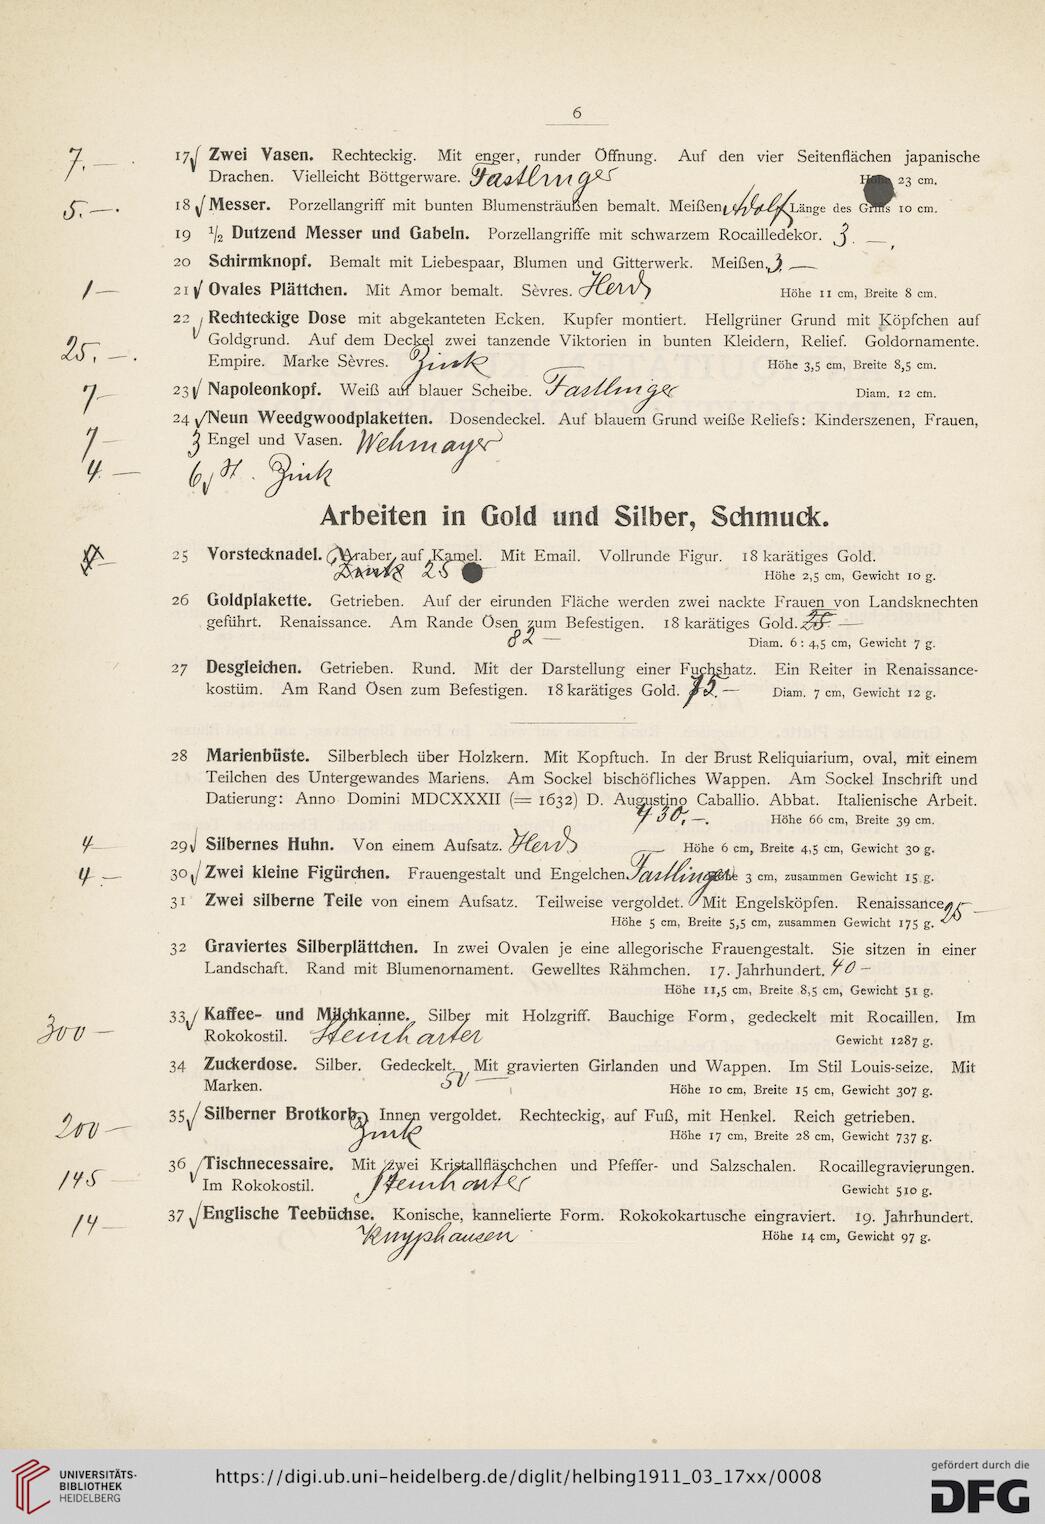 6
7.— 17√ Zwei Vasen. Rechteckig. Mit enger, runder Öffnung. Auf den vier Seitenflächen japanische
Drachen. Vielleicht Böttgerware. Fastlinger 23 cm.
5.—. 18√ Messer. Porzellangriff mit bunten Blumensträußen bemalt. Meißen. Adolf Länge des Griffs 10 cm.
19 ½ Dutzend Messer und Gabeln. Porzellangriffe mit schwarzem Rocailledekor. 3.—
20 Schirmknopf. Bemalt mit Liebespaar, Blumen und Gitterwerk. Meißen. 3.—
1— 21√ Ovales Plättchen. Mit Amor bemalt. Sèvres. Höhe 11 cm, Breite 8 cm.
22√ Rechteckige Dose mit abgekanteten Ecken. Kupfer montiert. Hellgrüner Grund mit Köpfchen auf
25.—. Goldgrund. Auf dem Deckel zwei tanzende Viktorien in bunten Kleidern, Relief. Goldornamente.
Empire. Marke Sèvres. Zink Höhe 3,5 cm, Breite 8,5 cm.
7— 23√ Napoleonkopf. Weiß auf blauer Scheibe. Fastlinger Diam. 12 cm.
24√ Neun Weedgwoodplaketten. Dosendeckel. Auf blauem Grund weiße Reliefs: Kinderszenen, Frauen,
7— 3 Engel und Vasen. Wehmayer
4.— 6√ Zink
Arbeiten in Gold und Silber, Schmuck.
25 Vorstecknadel. Araber auf Kamel. Mit Email. Vollrunde Figur. 18 karätiges Gold.
Zink 25 Höhe 2,5 cm, Gewicht 10 g.
26 Goldplakette. Getrieben. Auf der eirunden Fläche werden zwei nackte Frauen von Landsknechten
geführt. Renaissance. Am Rande Ösen zum Befestigen. 18 karätiges Gold. —
82— Diam. 6 : 4,5 cm, Gewicht 7 g.
27 Desgleichen. Getrieben. Rund. Mit der Darstellung einer Fuchshatz. Ein Reiter in Renaissance-
kostüm. Am Rand Ösen zum Befestigen. 18 karätiges Gold. Diam. 7 cm, Gewicht 12 g.
28 Marienbüste. Silberblech über Holzkern. Mit Kopftuch. In der Brust Reliquiarium, oval, mit einem
Teilchen des Untergewandes Mariens. Am Sockel bischöfliches Wappen. Am Sockel Inschrift und
Datierung: Anno Domini MDCXXXII (= 1632) D. Augustino Caballio. Abbat. Italienische Arbeit.
430.—. Höhe 66 cm, Breite 39 cm.
4— 29√ Silbernes Huhn. Von einem Aufsatz. Höhe 6 cm, Breite 4,5 cm, Gewicht 30 g.
4.— 30√ Zwei kleine Figürchen. Frauengestalt und Engelchen. Fastlinger Höhe 3 cm, zusammen Gewicht 15 g.
31 Zwei silberne Teile von einem Aufsatz. Teilweise vergoldet. Mit Engelsköpfen. Renaissance. 25—
Höhe 5 cm, Breite 5,5 cm, zusammen Gewicht 175 g.
32 Graviertes Silberplättchen. In zwei Ovalen je eine allegorische Frauengestalt. Sie sitzen in einer
Landschaft. Rand mit Blumenornament. Gewelltes Rähmchen. 17. Jahrhundert. 40—
Höhe 11,5 cm, Breite 8,5 cm, Gewicht 51 g.
33√ Kaffee- und Milchkanne. Silber mit Holzgriff. Bauchige Form, gedeckelt mit Rocaillen. Im
300— Rokokostil. Steinharter Gewicht 1287 g.
34 Zuckerdose. Silber. Gedeckelt. Mit gravierten Girlanden und Wappen. Im Stil Louis-seize. Mit
Marken. 50— Höhe 10 cm, Breite 15 cm, Gewicht 307 g.
35√ Silberner Brotkorb. Innen vergoldet. Rechteckig, auf Fuß, mit Henkel. Reich getrieben.
200— Zink Höhe 17 cm, Breite 28 cm, Gewicht 737 g.
36√ Tischnecessaire. Mit zwei Kristallfläschchen und Pfeffer- und Salzschalen. Rocaillegravierungen.
145— Im Rokokostil. Steinharter Gewicht 510 g.
37√ Englische Teebüchse. Konische, kannelierte Form. Rokokokartusche eingraviert. 19. Jahrhundert.
14— Knyphausen Höhe 14 cm, Gewicht 97 g.
UNIVERSITÄTS-
BIBLIOTHEK
HEIDELBERG
https://digi.ub.uni-heidelberg.de/diglit/helbing1911_03_17xx/0008
gefördert durch die
DFG